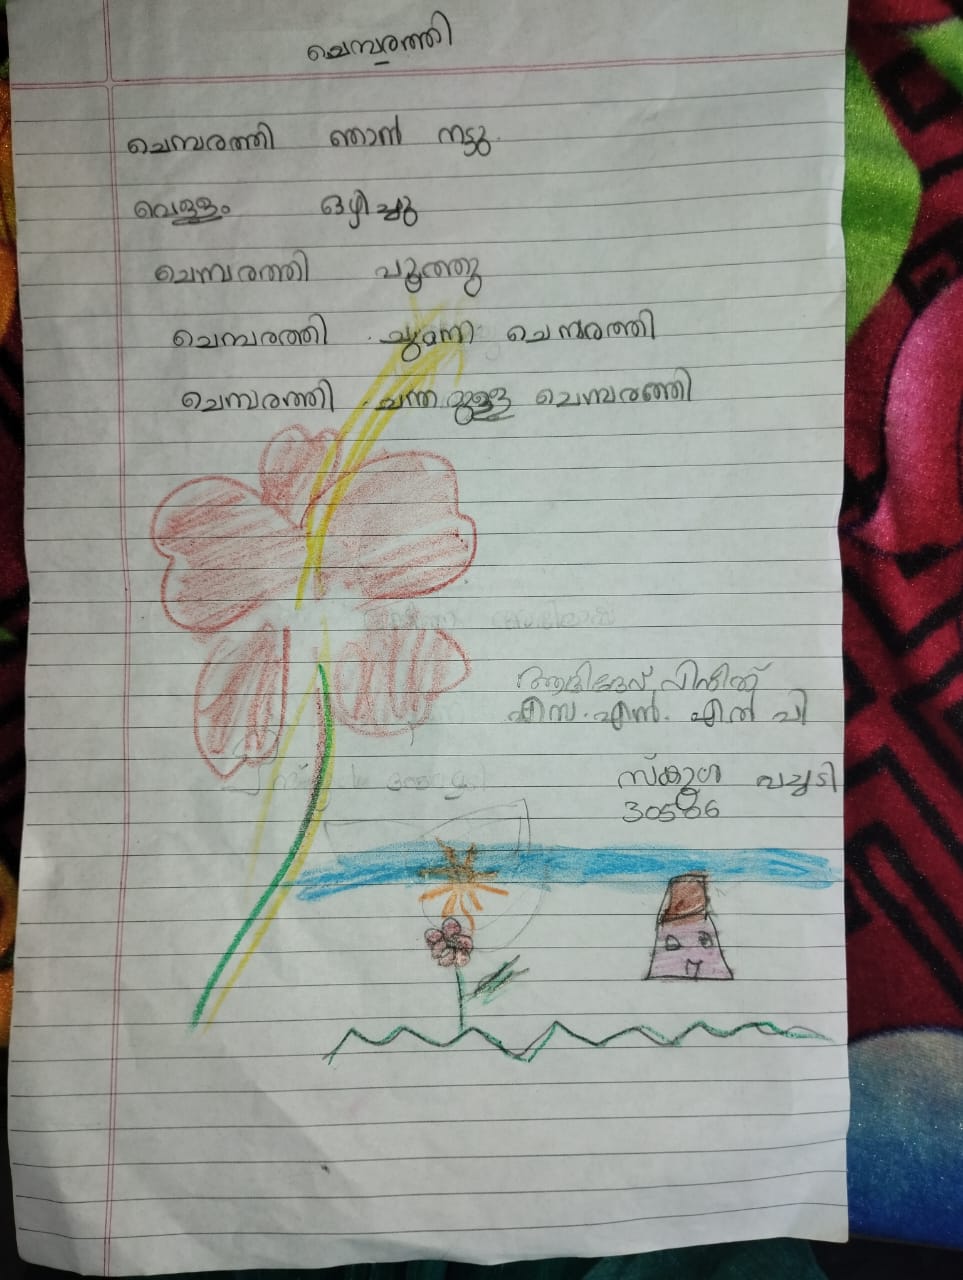 ചെമ്പരത്തി
ചെമ്പരത്തി ഞാൻ നട്ടു.
വെള്ളം ഒഴിച്ചു
ചെമ്പരത്തി പൂത്തു
ചെമ്പരത്തി ചുമന്ന ചെമ്പരത്തി
ചെമ്പരത്തി ചന്തമുള്ള ചെമ്പരത്തി
ആദിദേവ്
എസ്.എൻ. എൽ പി
സ്കൂൾ പച്ചടി
30566